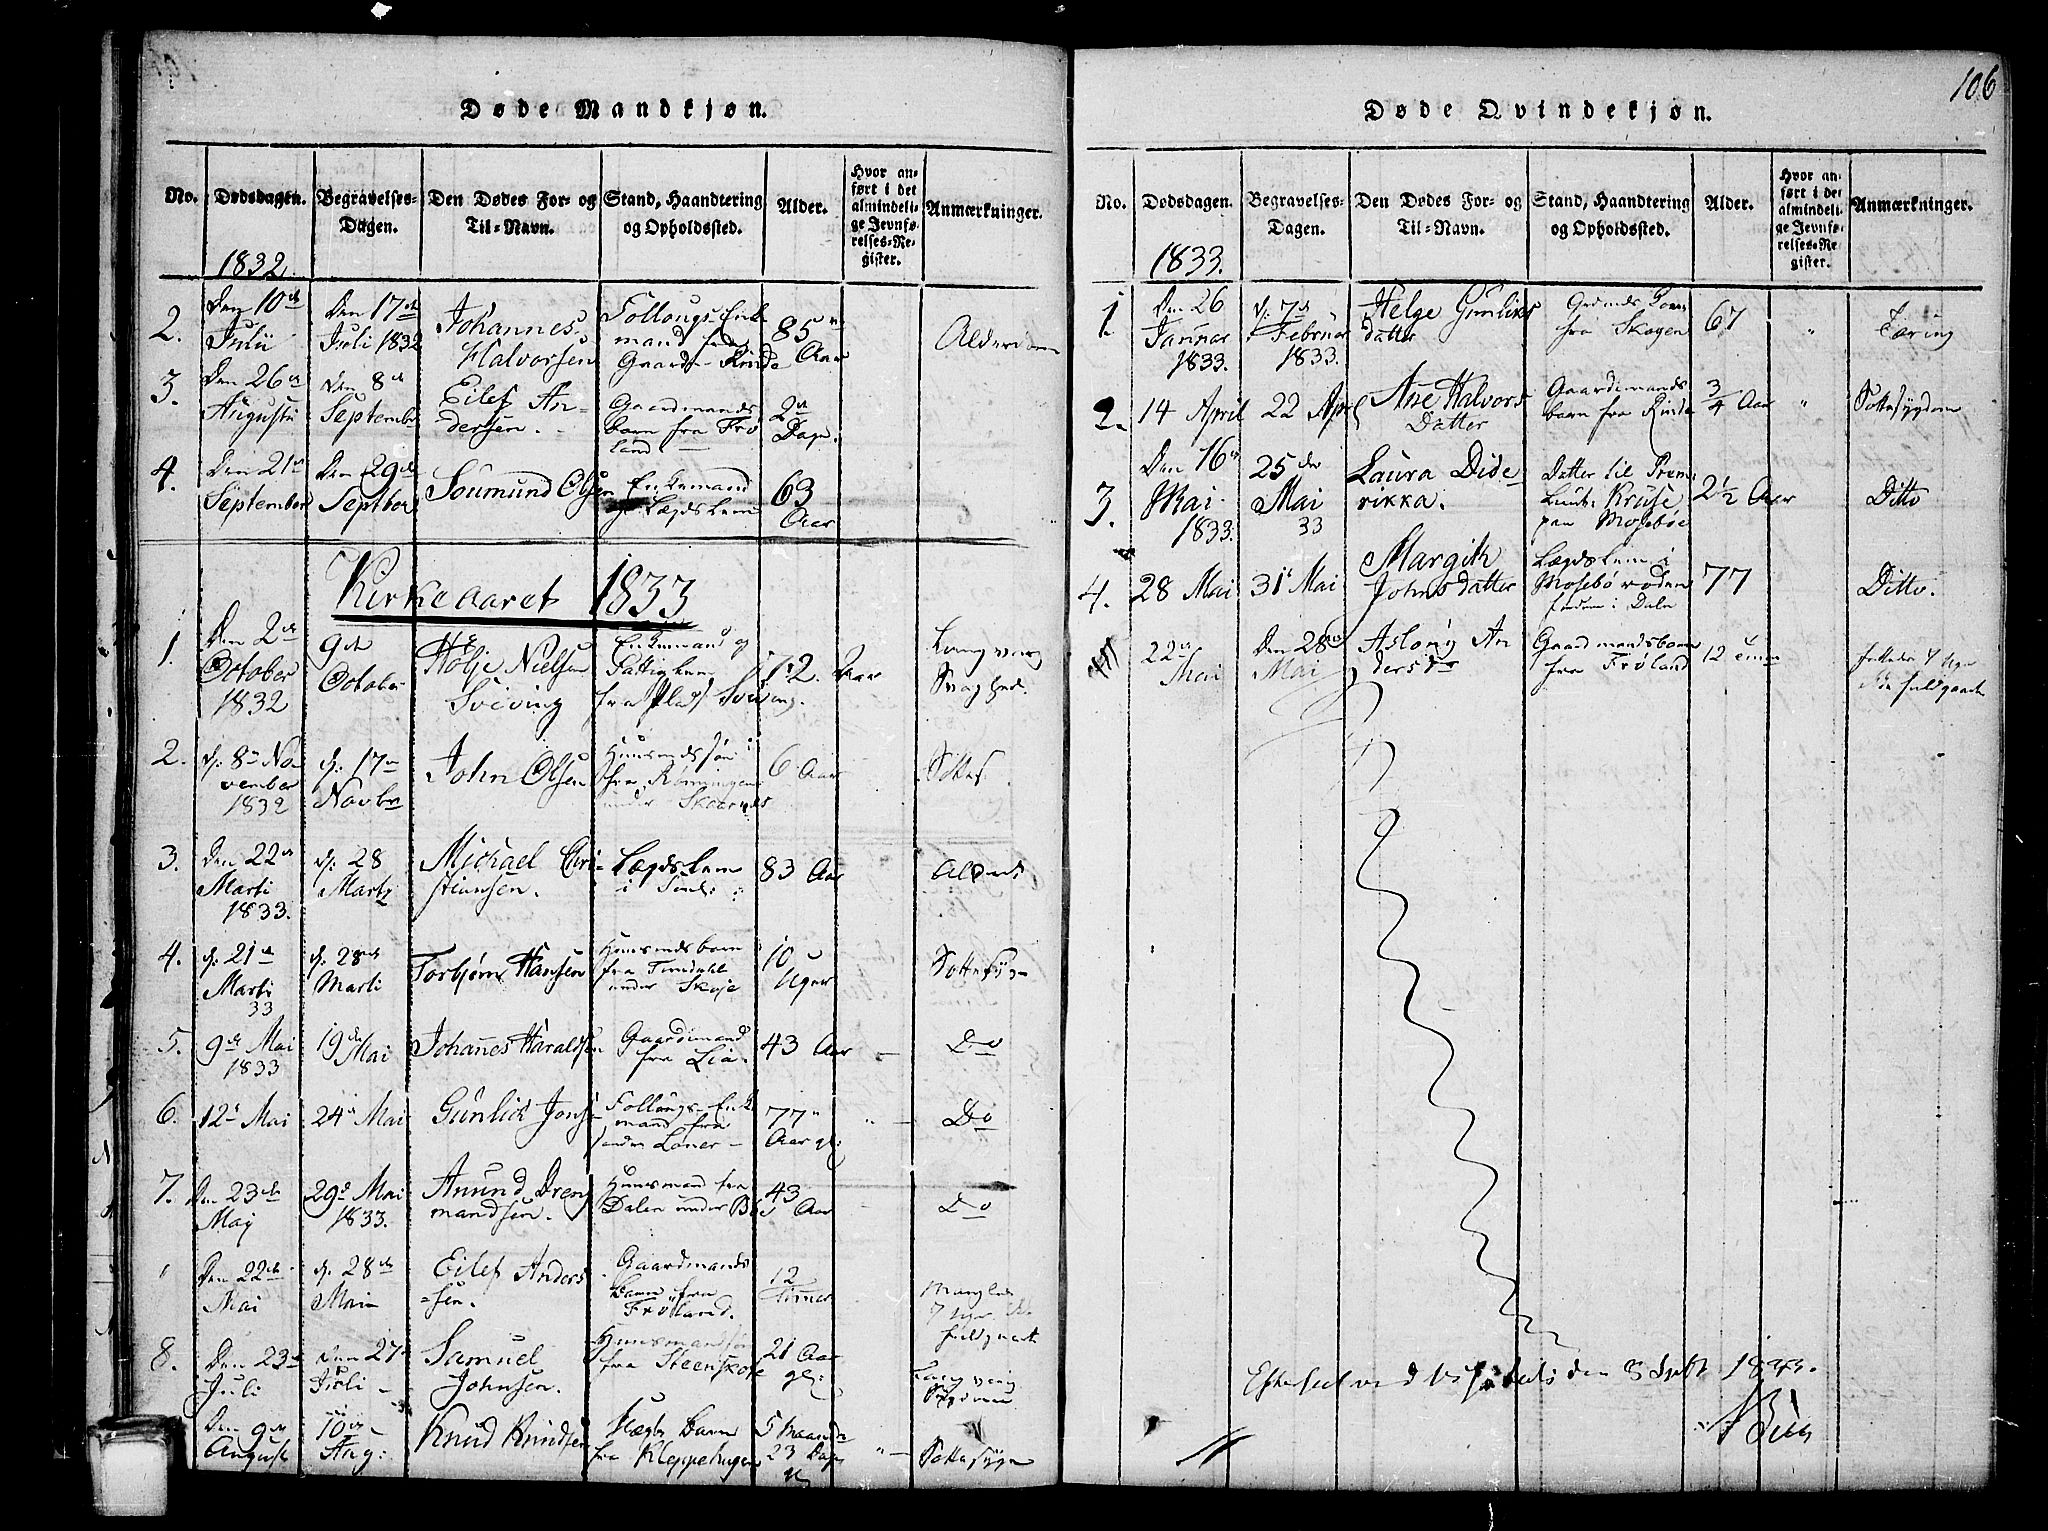 106
Døde Mandkjøn.
No.
Dødsdagen.
Begravelses-
Dagen.
Den Dødes For- og
Til-Navn.
Stand, Haandtering
og Opholdssted.
Alder.
Hvor an-
ført i det
almindeli-
ge Jevnfø-
relses-Re-
gister.
Anmærkninger.
1832
2.
Den 10de
Julii
Den 17de
Juli 1832
Johannes
Halvorsen
Follougs-Enke
mand fra
Gaard-Rinde
85
Aar
Alderdom
3.
Den 26de
Augusti
Den 8de
September
Eilef An-
dersen.
Gaardmands
barn fra Frö
land
2de
Dage.
4.
Den 21de
September
Den 29de
Septbor
Soumund Olsen
Enkemand
Lægdslem
63
Aar
Kirkeaaret 1833
1.
Den 2de
October
1832
9de
October
Hölje Nielsen
Sviving
Enkemand og
Fattiglem
fra Plads Sviving.
72. Aar
Langvarig
Svaghed.
2.
d: 8de No
vember
1832
d: 17de
Novbr
John Olsen
Huusmandssön
fra Rönningen
under Skaarnes
6 Aar
Sottes.
3.
Den 22de
Marti
1833.
d: 28
Martz
Michael Chri-
stiansen.
Lægdslem
i Sund:
83 Aar
Alderd
4.
d: 21de
Marti
33
d: 28de
Marti
Torbjörn Hansen
Huusmdsbarn
fra Tindahl
under Skoje
10
Uger
Sottesyg-
5.
9de Mai
1833
19de Mai
Johannes Haraldsen
Gaardmand
fra Lia.
43 Aar
Do
6.
12te Mai
24de Mai
Gunlick Jons
Follougs-Enke
mand fra
søndre Loner
77
Aar gl:
Do
7.
Den 23de
Maj
29de Mai
1833.
Anund Dreng
mandsen.
Huusmand fra
Dalen under Bö
43
Aar
Do
"
Den 22de
Mai
d: 28de
Mai
Eilef Anders
=sen.
Gaardmands
Barn fra
Fröland.
12
Timer
Manglede
7 Uger i at
fuldgaaet
8.
Den 23de
Juli
Den 27de
Juli
Samuel
Johnsen.
Huusmandsön
fra Steenskoje
21 Aar
gl:
Langvarig
Sygdom
Den 9de
August
10de
Aug:
Knud Knudsen
Uægte Barn
fra Kleppehagen
5 Maaneder
23 Dage
gl
Sottesyge
Døde Qvindekjøn.
No.
Dødsdagen.
Begravelses-
Dagen.
Den Dødes For- og
Til-Navn.
Stand, Haandtering
og Opholdssted.
Alder.
Hvor an-
ført i det
almindeli-
ge Jevnfø-
relses-Re-
gister.
Anmærkninger.
1833.
1.
Den 26
Januar
1833.
d: 7de
Februar
1833.
Helge Gunliks
datter
Grdmds Kone
fra Skogen
67
"
Tæring
2.
14 April
22 Apr
Ane Halvors
Datter
Gaardmands
barn fra Rinde
3/4 Aar
"
Sottesygdom
3.
Den 16de
Mai
1833.
25de
Mai
33
Laura Dide
rikka.
Datter til Prem
Lieut: Kruse
paa Moseböe
2½ Aar
Ditto
4.
28 Mai
31te Mai
Margith
Johnsdatter
Lægdslem i
Mosebö roden
fordum i Dalen
77
Ditto.
22de
Mai
Den 28de
Mai
Asloug An
dersdr
Gaardmandsbarn
fra Fröland
12 Timer
fattedes 7 Uger
i at fuldgaaet
Efterseet ved Visitats den 8 Septbr 1833.